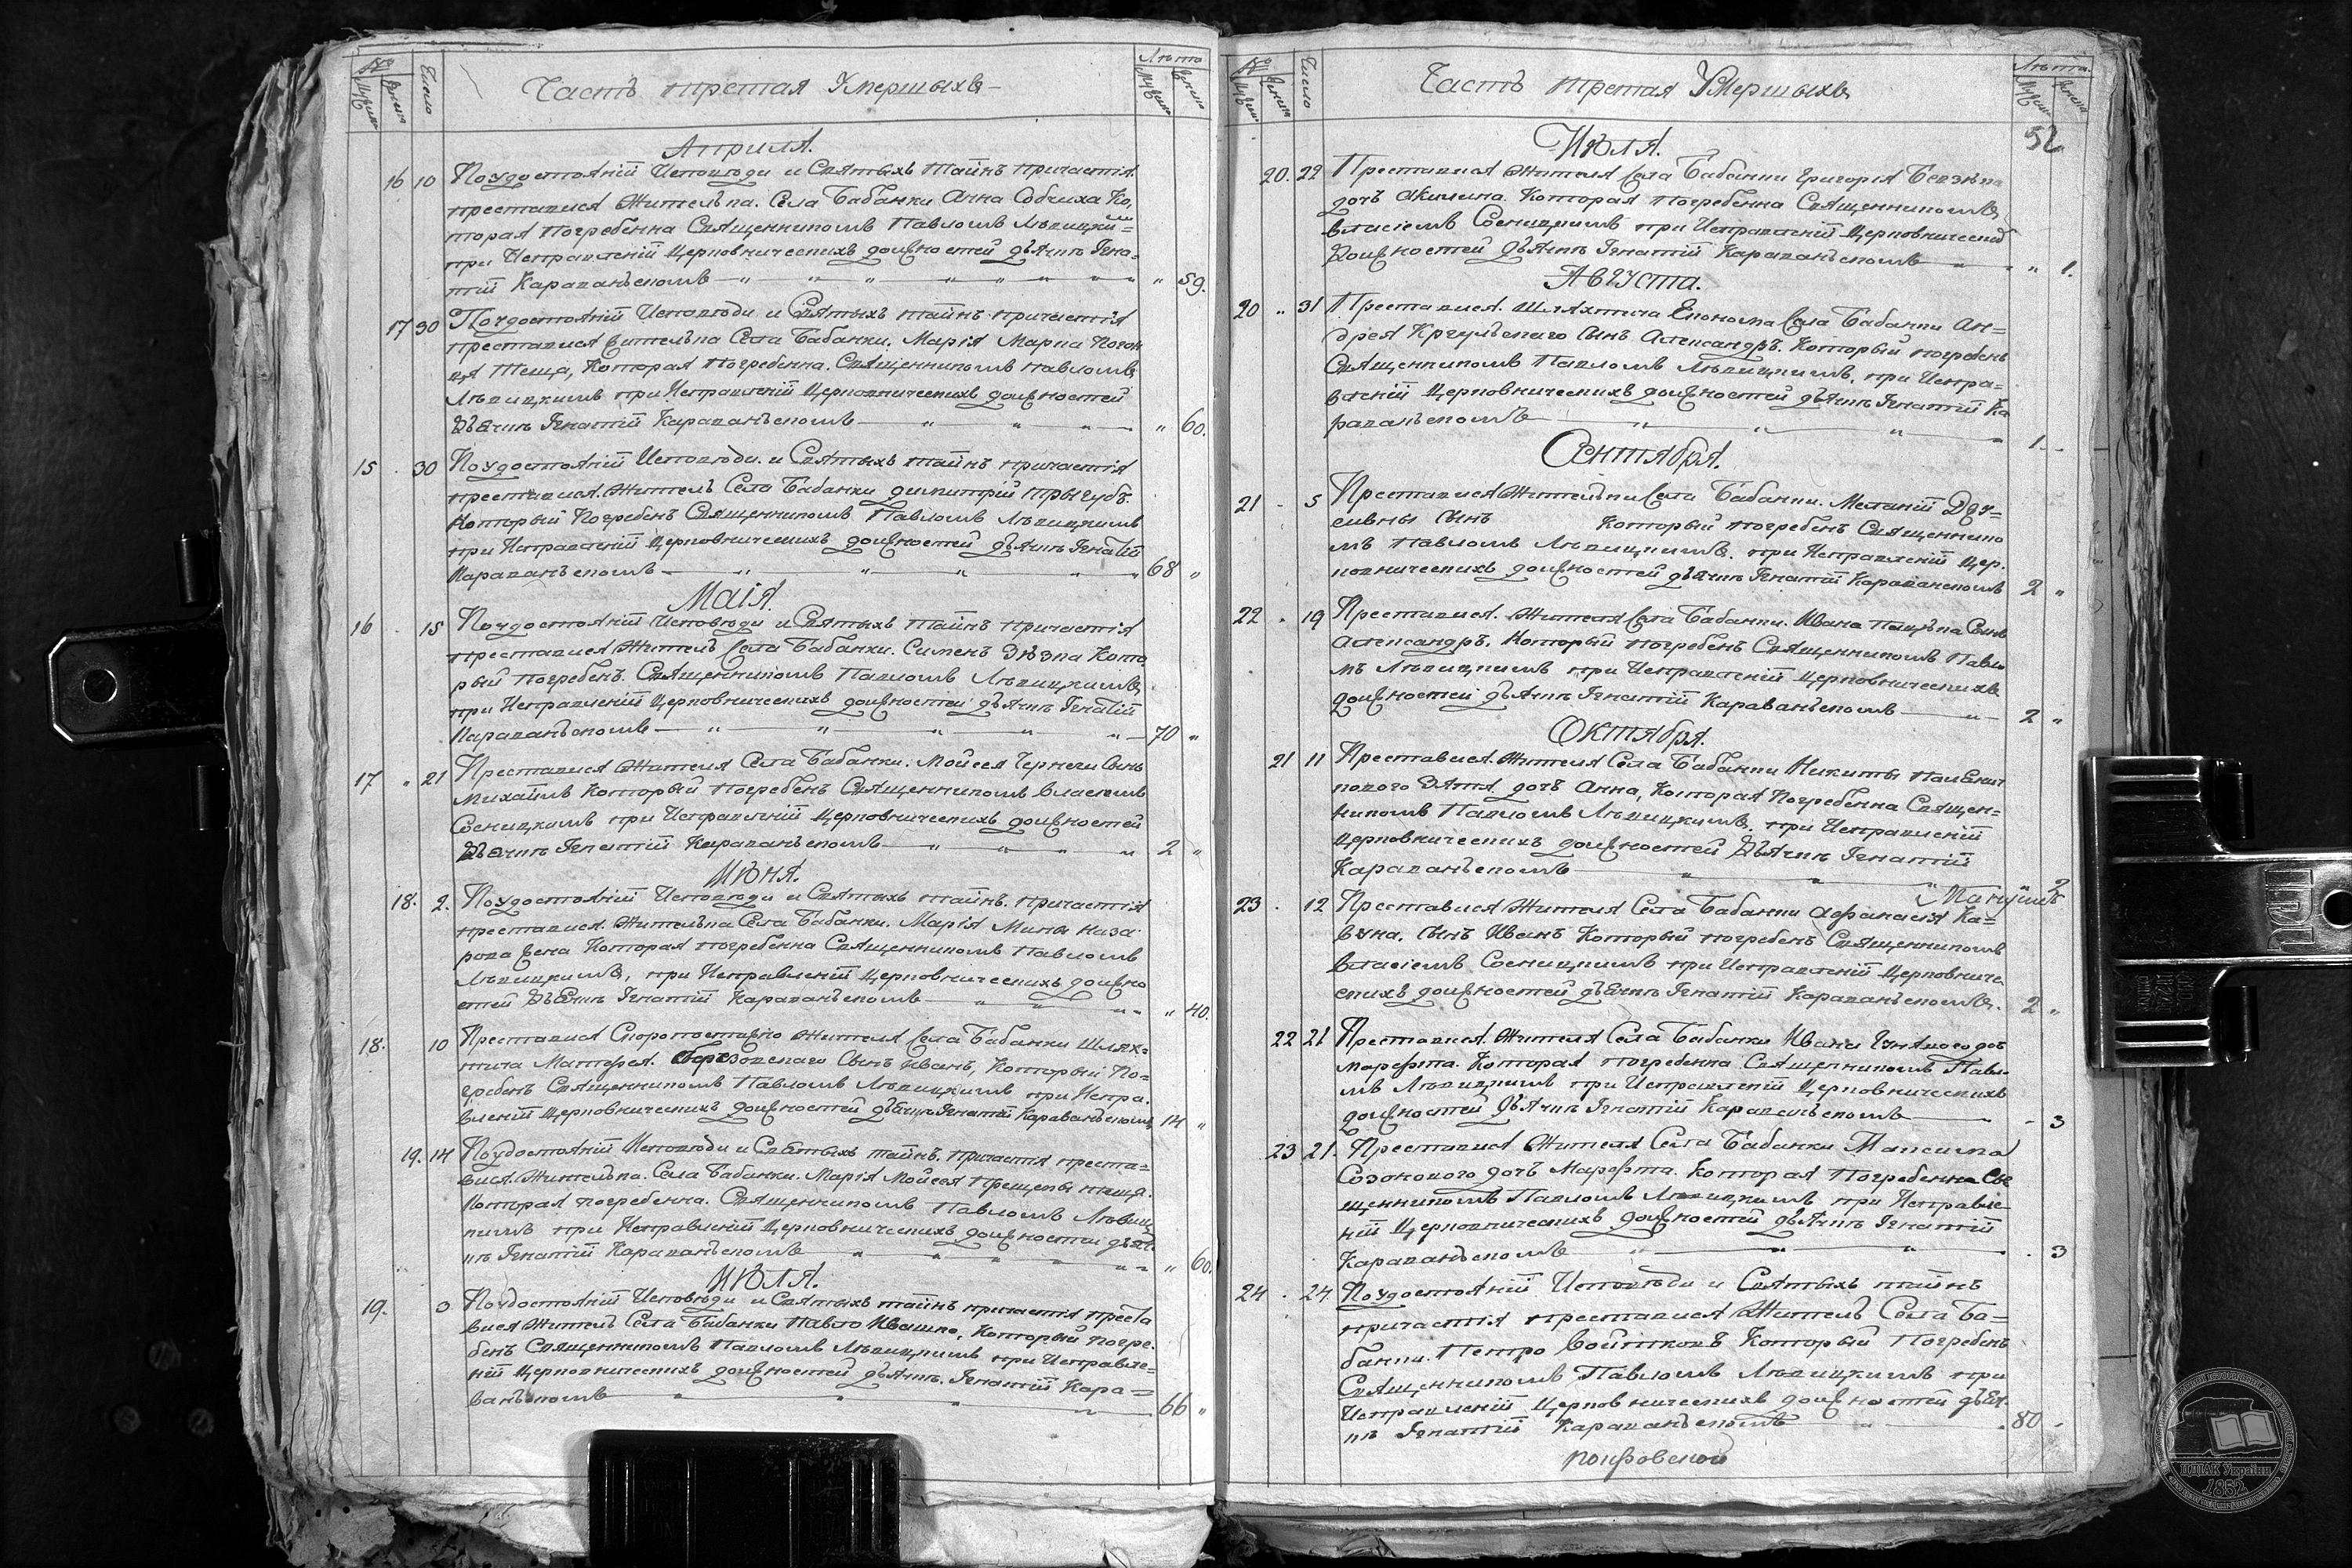 № Число Лѣта
Мужеска Женска
Часть третая Умершыхъ
Мужеска Женска
Априля.
16 10 Поудостоянiи Исповѣди и Святыхъ таинъ причастiя
преставися Жителька Села Бабанки Анна Собчиха Ко,
торая погребенна Священникомъ Павломъ Лѣвицки=
при Исправленiи Церковническихъ должностей дьячкѣ Iгна=
тiи Караванскомъ 59.
17 30 Поудостоянiи Исповѣди и Святыхъ таинъ причастiя
преставися жителька Села Бабанки. Марiя Марка
теща, Которая погребенна. Священникомъ Павломъ
Лѣвицкимъ при Исправленiи Церковническихъ должностей
Дьячкѣ Iгнатiи Караванскомъ 60.
15 30 Поудостоянiи Исповѣди. и Святыхъ таинъ причастiя
преставися. Житель Села Бабанки Димитрiй Прыгубъ.
Который Погребенъ Священникомъ Павломъ Лѣвицкимъ
при Исправленiи Церковническихъ должностей дьячкѣ Iгнатiи
Караванскомъ 68 "
Маiя.
16 15 Поудостоянiи Исповѣди и Святыхъ таинъ причастiя
преставися Житель Села Бабанки. Сименъ Зѣзка Кото
рый погребенъ. Священникомъ Павломъ Лѣвицкимъ,
при Исправленiи Церковническихъ должностей дьячкѣ Iгнатiи
Караванскомъ 70 "
17 " 21 Преставися Жителя Села Бабанки. Мойсея Чернеги Сынъ
Михаилъ Который погребенъ Священникомъ Власiемъ
Сосницкимъ при Исправленiи Церковническихъ должностей
Дьячкѣ Iгнатiи Караванскомъ 2 "
Июня.
18. 2. Поудостоянiи Исповѣди и Святыхъ таинъ. причастiя
преставися. Жителька Села Бабанки. Марiя Мины Наза
рова жена Которая погребенна Священникомъ Павломъ
Лѣвицкимъ, при Исправленiи Церковническихъ должно
стей Дьячкѣ Iгнатiи Караванскомъ " 40.
18. 10 Преставися Скоропостижно Жителя Села Бабанки Шлях=
тича Матфея. Березовскаго Сынъ Иванъ, Который По=
гребенъ Священникомъ Павломъ Лѣвицкимъ при Испра.
вленiи Церковническихъ должностей дьячкѣ Iгнатiи Караванскомъ 14 "
19. 14 Поудостоянiи Исповѣди и Святыхъ таинъ. причастiя преста=
вися. Жителька. Села Бабанки. Марiя Мойсея Прещепы теща.
Которая погребенна. Священникомъ Павломъ Лѣвиц
кимъ при Исправленiи Церковническихъ должностей дьяч.
кѣ Iгнатiи Караванскомъ " 60.
Июля.
19. 3 Поудостоянiи Исповѣди и Святыхъ таинъ причастiя преста
вися Житель Села Бабанки Павло Ивашко, Который погре.
бенъ Священникомъ Павломъ Лѣвицкимъ при Исправле=
нiи Церковническихъ должностей дьячкѣ. Iгнатiи Кара=
ванскомъ 66 "
№ Число Лѣта.
Мужеска Женска
Часть третая Умершыхъ
Мужеска Женска
52
Июля.
20. 22 Преставися Жителя Села Бабанки Григорiя
дочь Акилина. Которая погребенна Священникомъ
Власiемъ Сосницкимъ при Исправленiи Церковническихъ
Должностей Дьячкѣ Iгнатiи Караванскомъ " 1.
Августа.
20 " 31 Преставися. Шляхтича Економа Села Бабанки Ан=
дрея Сынъ Александръ. Который погребенъ
Священникомъ Павломъ Лѣвицкимъ, при Испра=
вленiи Церковническихъ должностей дьячкѣ Iгнатiи Ка
раванскомъ 1
Сентября.
21 5 Преставися Жительки Села Бабанки. Меланiи
сынъ Который погребенъ Священнико
мъ Павломъ Лѣвицкимъ. при Исправленiи Цер.
ковническихъ должностей дьячкѣ Iгнатiи Караванскомъ 2 "
22 19 Преставися. Жителя Села Бабанки. Ивана Сынъ
Александръ. Который погребенъ Священникомъ Павло
мъ Лѣвицкимъ при Исправленiи Церковническихъ
должностей дьячкѣ Iгнатiи Караванскомъ 2 "
Октября.
21 11 Преставися. Жителя Села Бабанки Никиты
кового Зятя дочь Анна, Которая Погребенна Священ=
никомъ Павломъ Лѣвицкимъ. при Исправленiи
Церковническихъ должностей Дьячкѣ Iгнатiи
Караванскомъ 2
23 12 Преставися Жителя Села Бабанки Афанасiя Ка=
вуна. Сынъ Иванъ Который погребенъ Священникомъ
Власiемъ Сосницкимъ при Исправленiи Церковниче
скихъ должностей дьячкѣ Iгнатiи Караванскомъ. 2 "
22 21 Преставися. Жителя Села Бабанки Ивана дочь
Марфта. Которая погребенна Священникомъ Павло
мъ Лѣвицкимъ при Исправленiи Церковническихъ
должностей Дьячкѣ Iгнатiи Караванскомъ 3
23 21. Преставися Жителя Села Бабанки Максима
Созонового дочь Марфта. Которая Погребенна Свя
щенникомъ Павломъ Лѣвицкимъ при Исправле
нiи Церковническихъ должностей дьячкѣ Iгнатiи
Караванскомъ 3
24 24. Поудостоянiи Исповѣди и Святыхъ таинъ
причастiя преставися Житель Села Ба=
банки. Петро Войтковъ Который Погребенъ
Священникомъ Павломъ Лѣвицкимъ при
Исправленiи Церковническихъ должностей дьяч.
кѣ Iгнатiи Караванскомъ 80
покровской
ЦДIАК України
1852